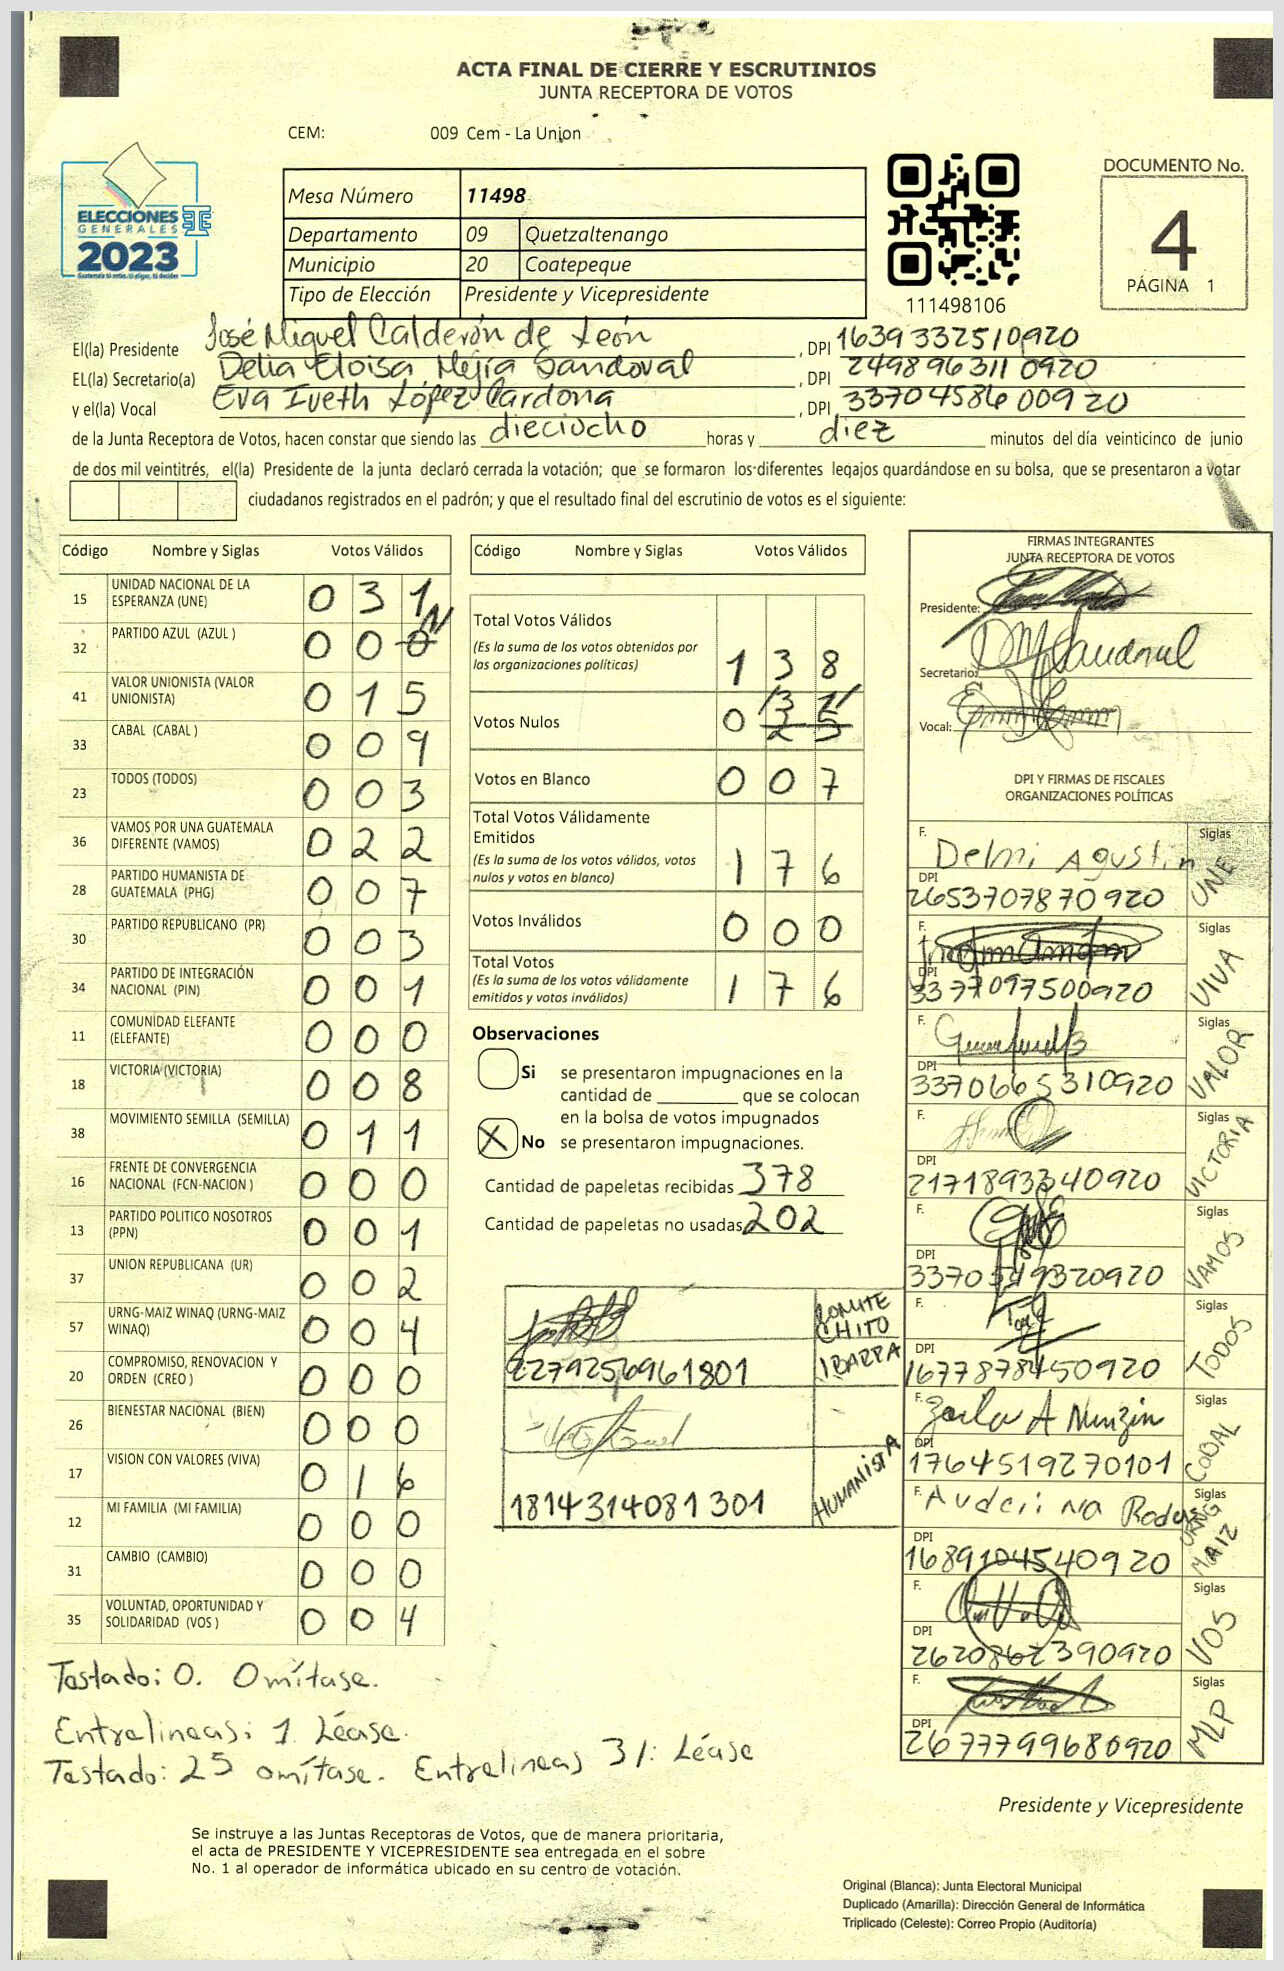 ACTA FINAL DE CIERRE Y ESCRUTINIOS
JUNTA RECEPTORA DE VOTOS
CEM: 009 Cem - La Union
ELECCIONES
GENERALES
2023
Mesa Número 11498
Departamento 09 Quetzaltenango
Municipio 20 Coatepeque
Tipo de Elección Presidente y Vicepresidente
111498106
DOCUMENTO No.
4
PÁGINA 1
El(la) Presidente José Miguel Calderón de León, DPI 1639332510920
EL(la) Secretario(a) Delia Eloisa Mejía Sandoval, DPI 2498963110920
y el(la) Vocal Eva Iveth López Cardona, DPI 3370458600920
de la Junta Receptora de Votos, hacen constar que siendo las dieciocho horas y diez minutos del día veinticinco de junio
de dos mil veintitrés, el(la) Presidente de la junta declaró cerrada la votación; que se formaron los diferentes legajos guardándose en su bolsa, que se presentaron a votar
ciudadanos registrados en el padrón; y que el resultado final del escrutinio de votos es el siguiente:
Código Nombre y Siglas Votos Válidos
15 UNIDAD NACIONAL DE LA ESPERANZA (UNE) 0 3 1
32 PARTIDO AZUL (AZUL ) 0 0 0 1
41 VALOR UNIONISTA (VALOR UNIONISTA) 0 1 5
33 CABAL (CABAL ) 0 0 9
23 TODOS (TODOS) 0 0 3
36 VAMOS POR UNA GUATEMALA DIFERENTE (VAMOS) 0 2 2
28 PARTIDO HUMANISTA DE GUATEMALA (PHG) 0 0 7
30 PARTIDO REPUBLICANO (PR) 0 0 3
34 PARTIDO DE INTEGRACIÓN NACIONAL (PIN) 0 0 1
11 COMUNIDAD ELEFANTE (ELEFANTE) 0 0 0
18 VICTORIA (VICTORIA) 0 0 8
38 MOVIMIENTO SEMILLA (SEMILLA) 0 1 1
16 FRENTE DE CONVERGENCIA NACIONAL (FCN-NACION ) 0 0 0
13 PARTIDO POLITICO NOSOTROS (PPN) 0 0 1
37 UNION REPUBLICANA (UR) 0 0 2
57 URNG-MAIZ WINAQ (URNG-MAIZ WINAQ) 0 0 4
20 COMPROMISO, RENOVACION Y ORDEN (CREO ) 0 0 0
26 BIENESTAR NACIONAL (BIEN) 0 0 0
17 VISION CON VALORES (VIVA) 0 1 6
12 MI FAMILIA (MI FAMILIA) 0 0 0
31 CAMBIO (CAMBIO) 0 0 0
35 VOLUNTAD, OPORTUNIDAD Y SOLIDARIDAD (VOS ) 0 0 4
Tastado: 0. Omítase.
Entrelineas: 1 Léase.
Testado: 25 omítase. Entrelineas 31: Léase
Código Nombre y Siglas Votos Válidos
Total Votos Válidos
(Es la suma de los votos obtenidos por las organizaciones políticas) 1 3 8
Votos Nulos 0 2 5 31
Votos en Blanco 0 0 7
Total Votos Válidamente Emitidos
(Es la suma de los votos válidos, votos nulos y votos en blanco) 1 7 6
Votos Inválidos 0 0 0
Total Votos
(Es la suma de los votos válidamente emitidos y votos inválidos) 1 7 6
Observaciones
Si se presentaron impugnaciones en la
cantidad de ________ que se colocan
en la bolsa de votos impugnados
X No se presentaron impugnaciones.
Cantidad de papeletas recibidas 378
Cantidad de papeletas no usadas 202
COMITE
CHITO
IBARRA
2279256961801
1814314081301 HUMANISTA
FIRMAS INTEGRANTES
JUNTA RECEPTORA DE VOTOS
Presidente:
Secretario: DMSandoval
Vocal:
DPI Y FIRMAS DE FISCALES
ORGANIZACIONES POLÍTICAS
F. Delmi Agustin Siglas UNE
DPI 2653707870920
F. Siglas VIVA
DPI 3377097500920
F. Siglas VALOR
DPI 3370665310920
F. Siglas VICTORIA
DPI 2171893340920
F. Siglas VAMOS
DPI 3370549320920
F. Siglas TODOS
DPI 1677878450920
F. Siglas
DPI 1764519270101
F. Siglas URNG MAIZ
DPI 1689104540920
F. Siglas VOS
DPI 2620862390920
F. Siglas MLP
DPI 2677799680920
Presidente y Vicepresidente
Se instruye a las Juntas Receptoras de Votos, que de manera prioritaria,
el acta de PRESIDENTE Y VICEPRESIDENTE sea entregada en el sobre
No. 1 al operador de informática ubicado en su centro de votación.
Original (Blanca): Junta Electoral Municipal
Duplicado (Amarilla): Dirección General de Informática
Triplicado (Celeste): Correo Propio (Auditoría)